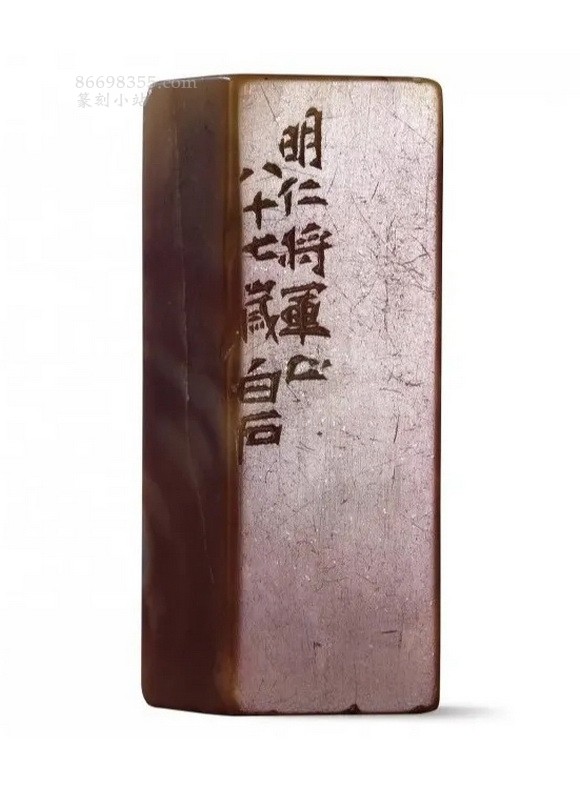 86698355.com
篆刻小站
明仁將軍
八十七歲白石